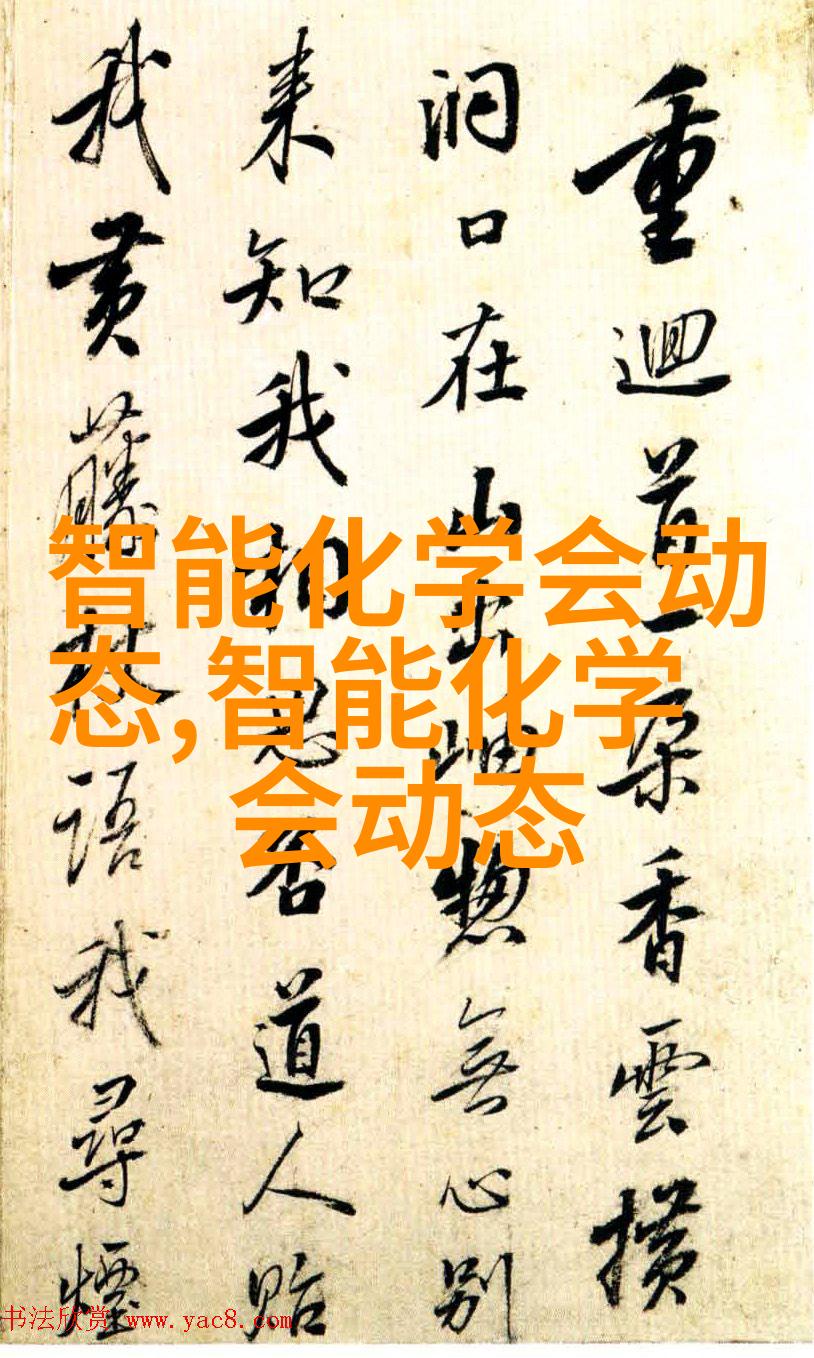 重迴首一朵香雲横
洞口在山出岫惣無心別
来知我否道人貽
我黄藤杖語我尋煙
智能化学会动
态,智能化学
会动态
书法欣赏 www.yac8.com